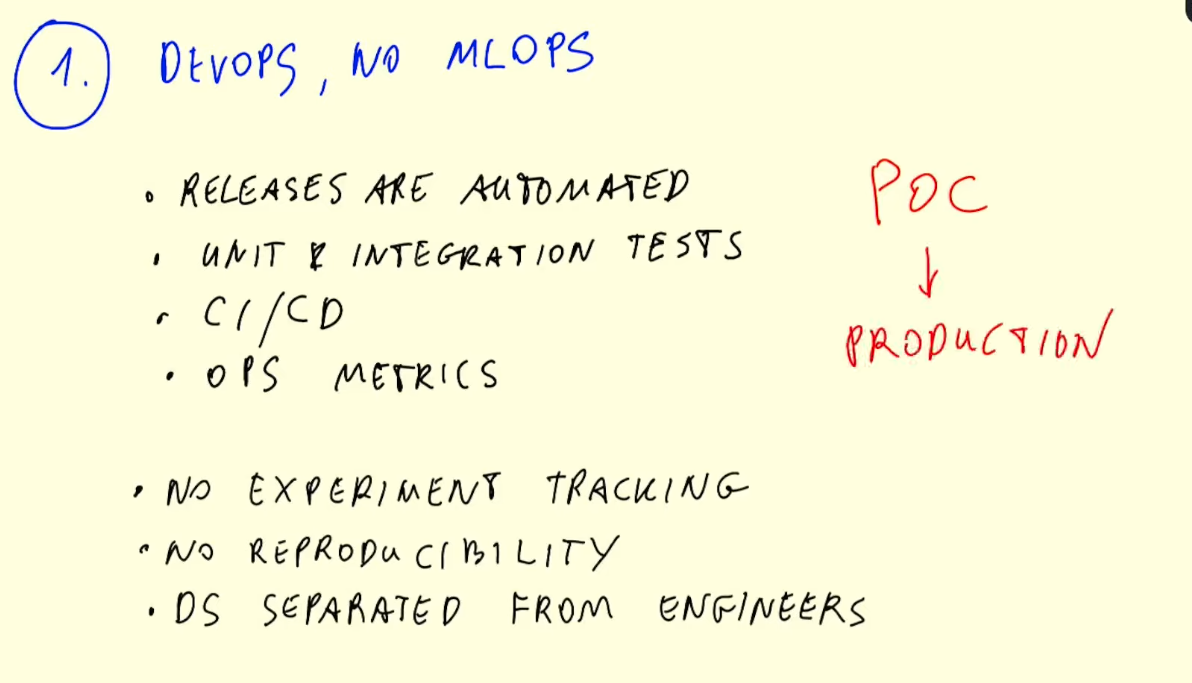 1. DEVOPS, NO MLOPS
• RELEASES ARE AUTOMATED
• UNIT & INTEGRATION TESTS
• CI/CD
• OPS METRICS
POC
↓
PRODUCTION
• NO EXPERIMENT TRACKING
• NO REPRODUCIBILITY
• DS SEPARATED FROM ENGINEERS